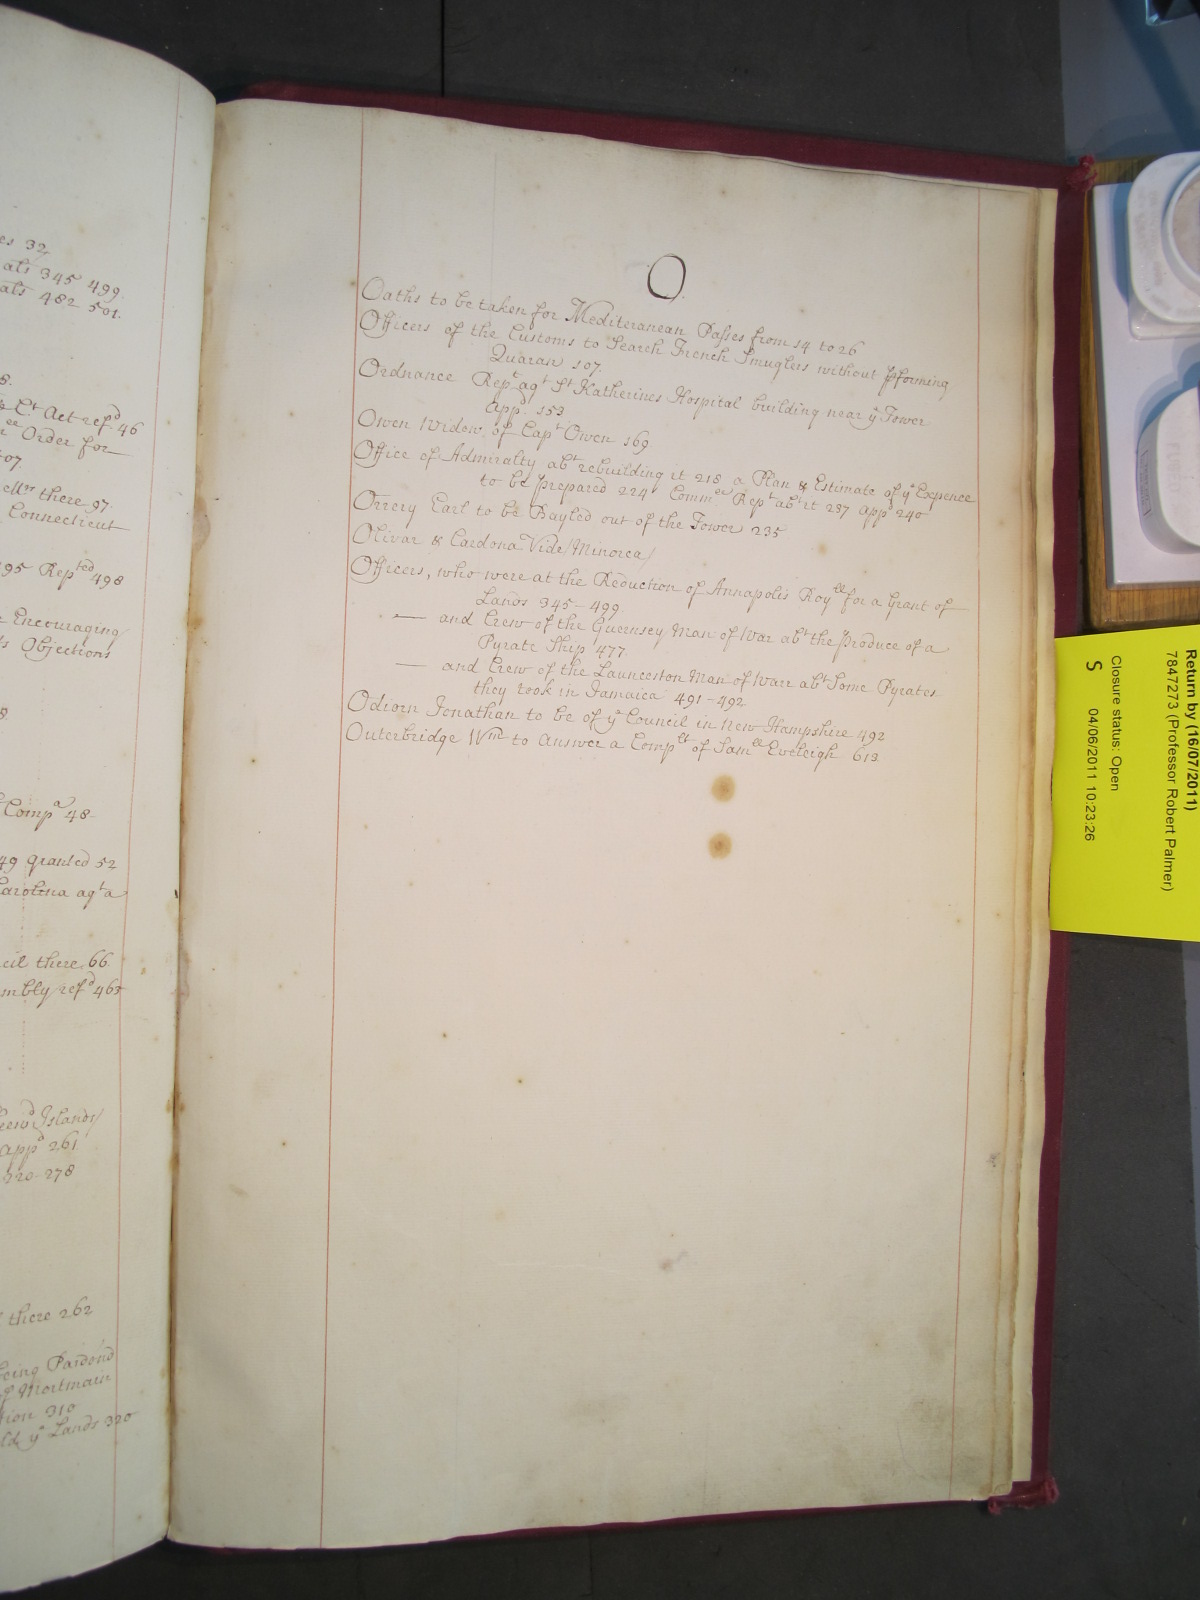 es 32
als 345 499
als 482 501.
Ct Act refd 46
Order for
Mrs there 97
Connecticut
95 Repted 498
Encouraging
Objections
Compa 48
49 granted 52
Carolina agt a
cil there 66
mbly refd 463
Islands
appd 261
220-278
there 262
being Pardond
of Mortmain
tion 310
ye Lands 320
O
Oaths to be taken for Mediteranean Passes from 14 to 26
Officers of the Customs to Search French Smuglers without pforming
Quaran 107.
Ordnance Rept agt St Katherines Hospital building near ye Tower
App. 153
Owen Widow of Capt Owen 169
Office of Admiralty abt rebuilding it 218 a Plan & Estimate of ye Expence
to be prepared 224 Commee Rept abt it 237 appd 240
Orrery Earl to be Bayled out of the Tower 235
Olivar & Cardona Vide/Minorca/
Officers, who were at the Reduction of Annapolis Royll for a Grant of
Lands 345-499.
— and Crew of the Guernsey Man of War abt the produce of a
Pyrate Ship 477.
— and Crew of the Launceston Man of Warr abt Some Pyrates
they took in Jamaica 491-492
Odiorn Jonathan to be of ye Council in New Hampshire 492
Outerbridge Wm to Answer a Complt of Samll Eveleigh 613
Return by (16/07/2011)
7847273 (Professor Robert Palmer)
Closure status: Open
S 04/06/2011 10:23:26